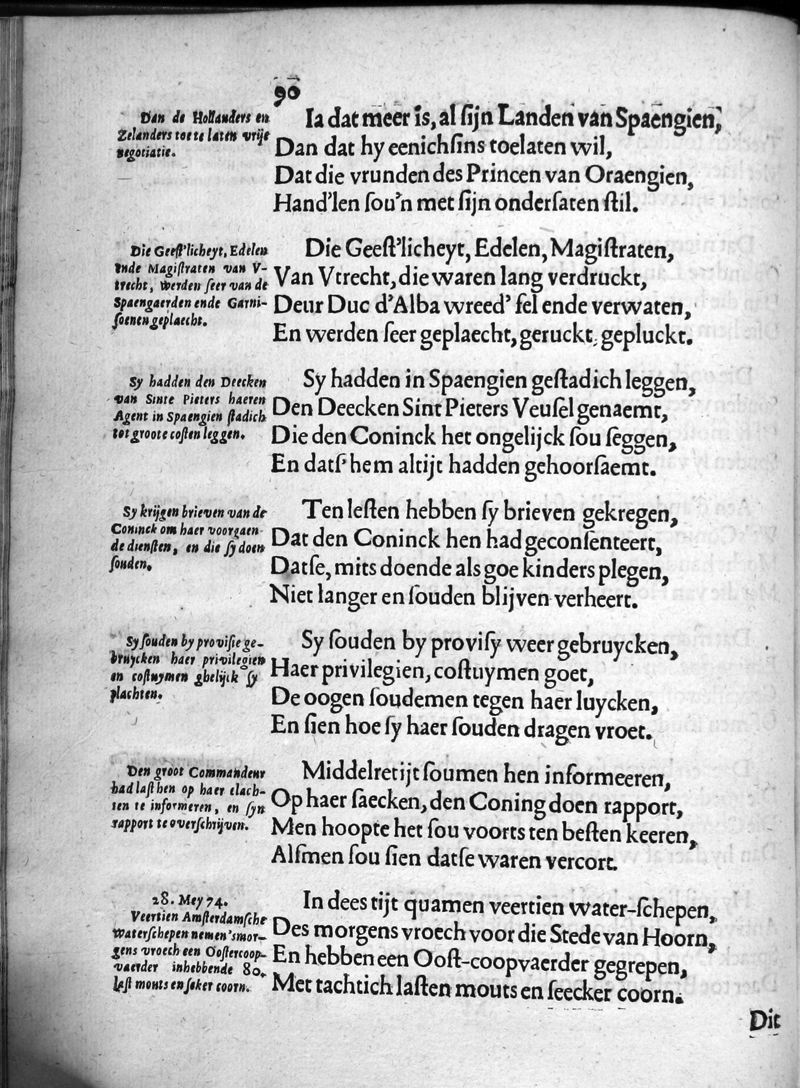 90
Dan de Hollanders en
Zelanders toe te laten vrije
negotiatie.
Ia dat meer is, al ſijn Landen van Spaengien,
Dan dat hy eenichſins toelaten wil,
Dat die vrunden des Princen van Oraengien,
Hand'len ſou'n met ſijn onderſaten ſtil.
Die Geeſt'licheyt, Edelen
ende Magiſtraten van V-
trecht, werden ſeer van de
Spaengaerden ende Garni-
ſoenen geplaecht.
Die Geeſt'licheyt, Edelen, Magiſtraten,
Van Vtrecht, die waren lang verdruckt,
Deur Duc d'Alba wreed' fel ende verwaten,
En werden ſeer geplaecht, geruckt, gepluckt.
Sy hadden den Deecken
van Sinte Pieters haeren
Agent in Spaengien ſtadich
tot groote coſten leggen.
Sy hadden in Spaengien geſtadich leggen,
Den Deecken Sint Pieters Veuſel genaemt,
Die den Coninck het ongelijck ſou ſeggen,
En datſ' hem altijt hadden gehoorſaemt.
Sy krijgen brieven van de
Coninck om haer voorgaen-
de dienſten, en die ſy doen
ſouden.
Ten leſten hebben ſy brieven gekregen,
Dat den Coninck hen had geconſenteert,
Datſe, mits doende als goe kinders plegen,
Niet langer en ſouden blijven verheert.
Sy ſouden by proviſie ge-
bruycken haer privilegien
en coſtuymen ghelijck ſy
plachten.
Sy ſouden by proviſy weer gebruycken,
Haer privilegien, coſtuymen goet,
De oogen ſoudemen tegen haer luycken,
En ſien hoe ſy haer ſouden dragen vroet.
Den groot Commandeur
had laſt hen op haer clach-
ten te informeren, en ſyn
rapport te overſchrijven.
Middelretijt ſoumen hen informeeren,
Op haer ſaecken, den Coning doen rapport,
Men hoopte het ſou voorts ten beſten keeren,
Alſmen ſou ſien datſe waren vercort.
28. Mey 74.
Veertien Amſterdamſche
Waterſchepen nemen 'smor-
gens vroech een Ooſtercoop-
vaerder inhebbende 80.
laſt mouts en ſeker coorn.
In dees tijt quamen veertien water-ſchepen,
Des morgens vroech voor die Stede van Hoorn,
En hebben een Ooſt-coopvaerder gegrepen,
Met tachtich laſten mouts en ſeecker coorn.
Dit